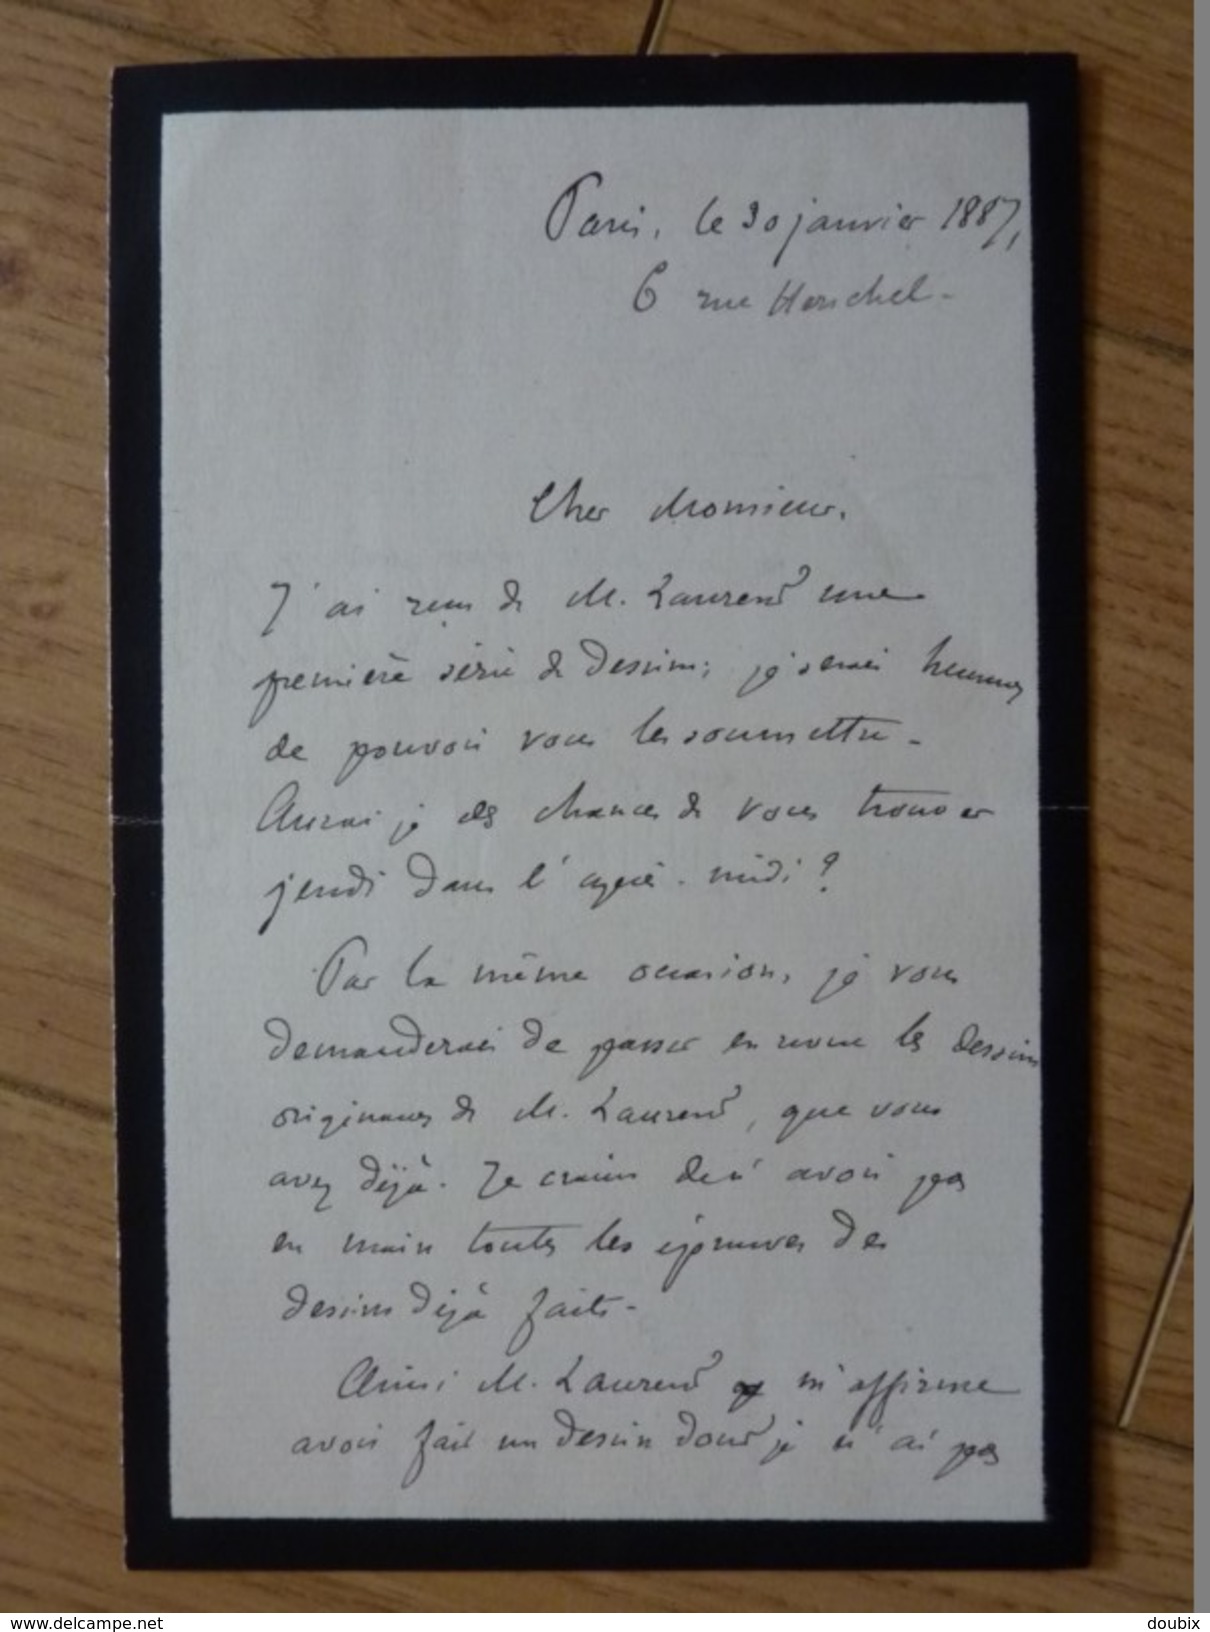 Paris, le 30 janvier 1887,
6 rue Herschel -
Cher Monsieur,
J'ai reçu de M. Laurent une
première série de dessins; je serai heureux
de pouvoir vous les soumettre -
Aurai je des chances de vous trouver
jeudi dans l'après-midi ?
Par la même occasion, je vous
demanderai de passer en revue les dessins
originaux de M. Laurent, que vous
avez déjà. Je crains de n'avoir pas
en main toutes les épreuves des
dessins déjà faits -
Ainsi M. Laurent m'affirme
avoir fait un dessin dont je n'ai pas
delcampe.net
doubix